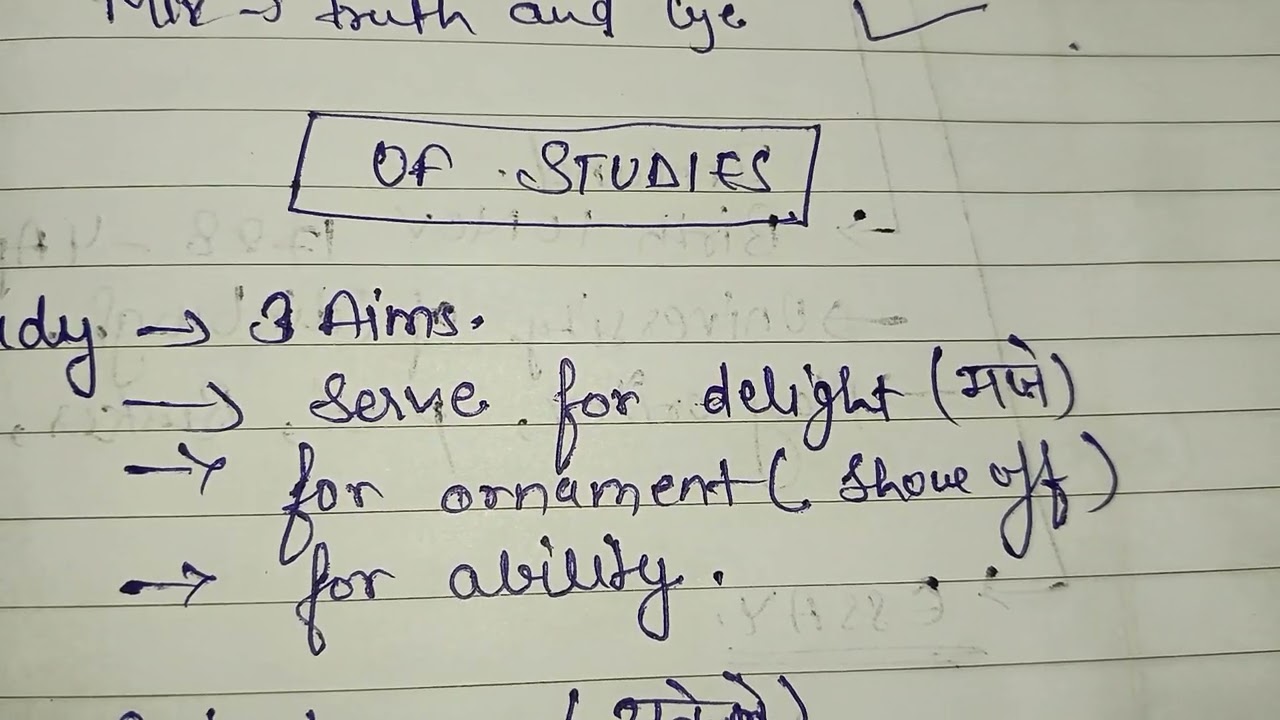 Mix → truth and lye
OF STUDIES
udy → 3 Aims.
→ serve for delight (मजे)
→ for ornament (Show off)
→ for ability.